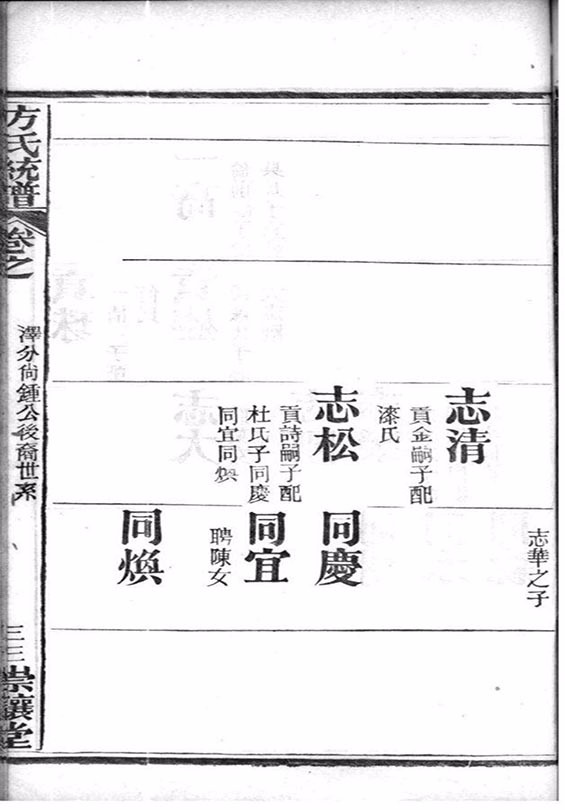 志清
貢金嗣子配
漆氏
志松
貢詩嗣子配
杜氏子同慶
同宜同煥
志華之子
同慶
同宜
聘陳女
同煥
方氏統譜
卷之
澤分尙鍾公後裔世系
三三
崇讓堂